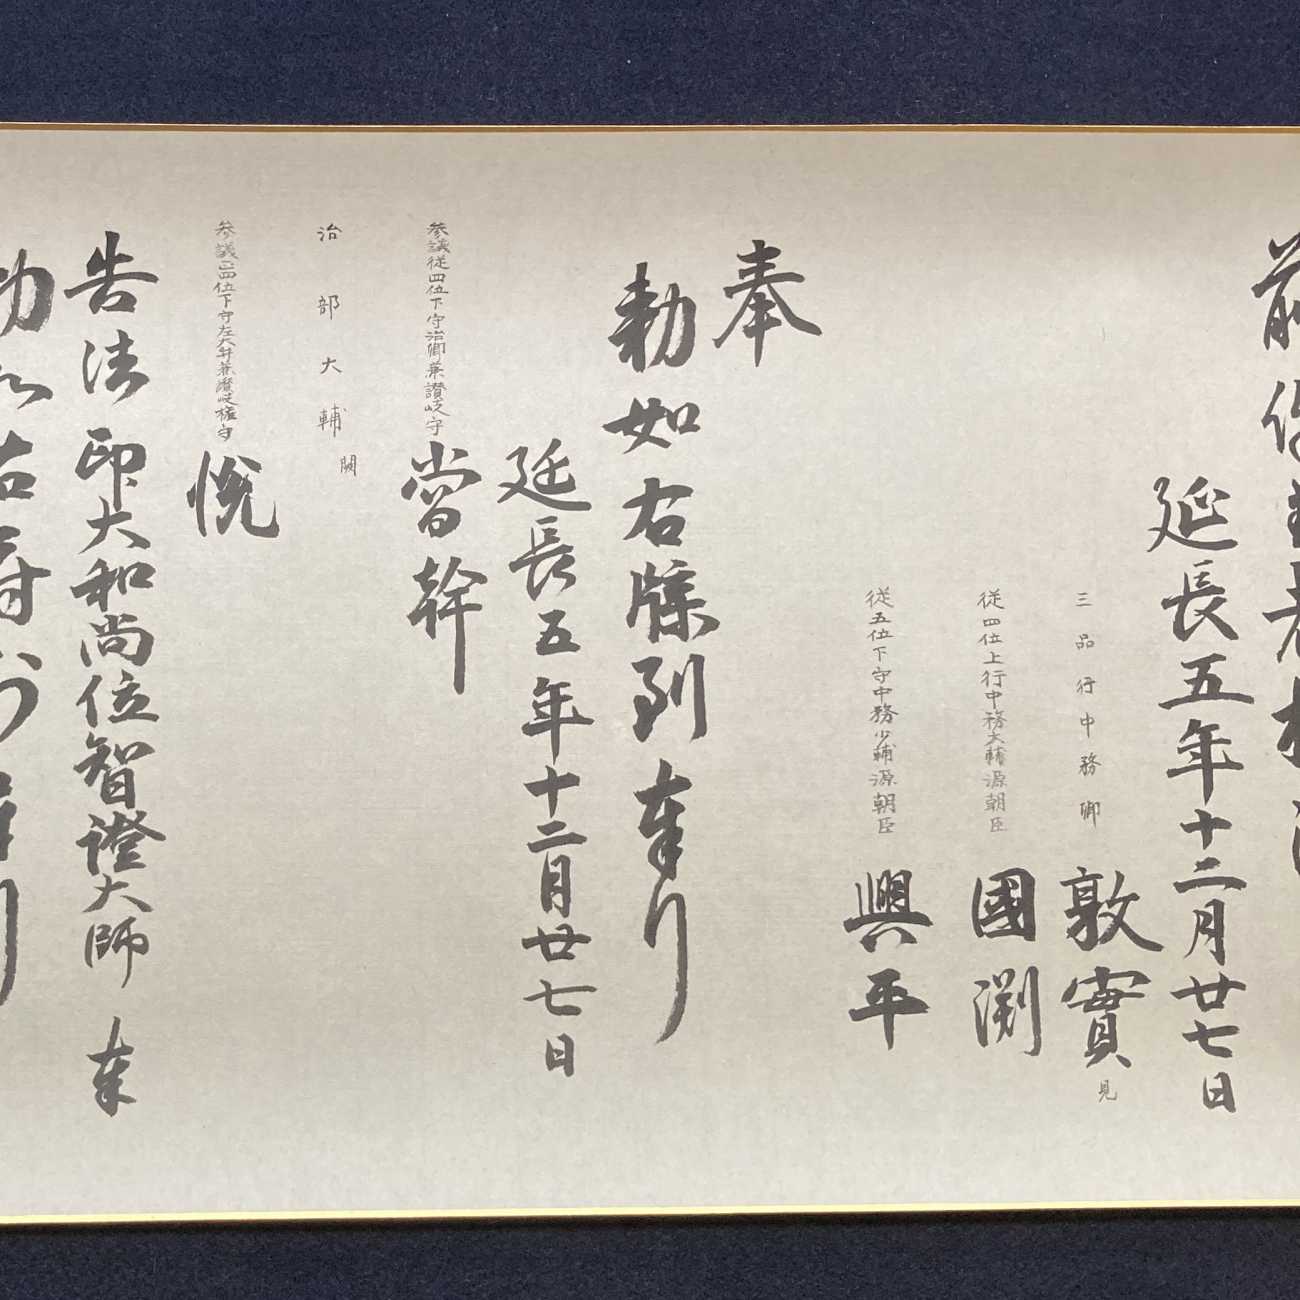 延長五年十二月廿七日
三品行中務卿敦實見
従四位上行中務大輔源朝臣國渕
従五位下守中務少輔源朝臣興平
奉
勅如右牒到奉行
延長五年十二月廿七日
参議従四位下守治卿兼讃岐守當幹
治部大輔闕
参議正四位下守左大弁兼讃岐権守悦
告法印大和尚位智證大師奉
勅如右符到奉行